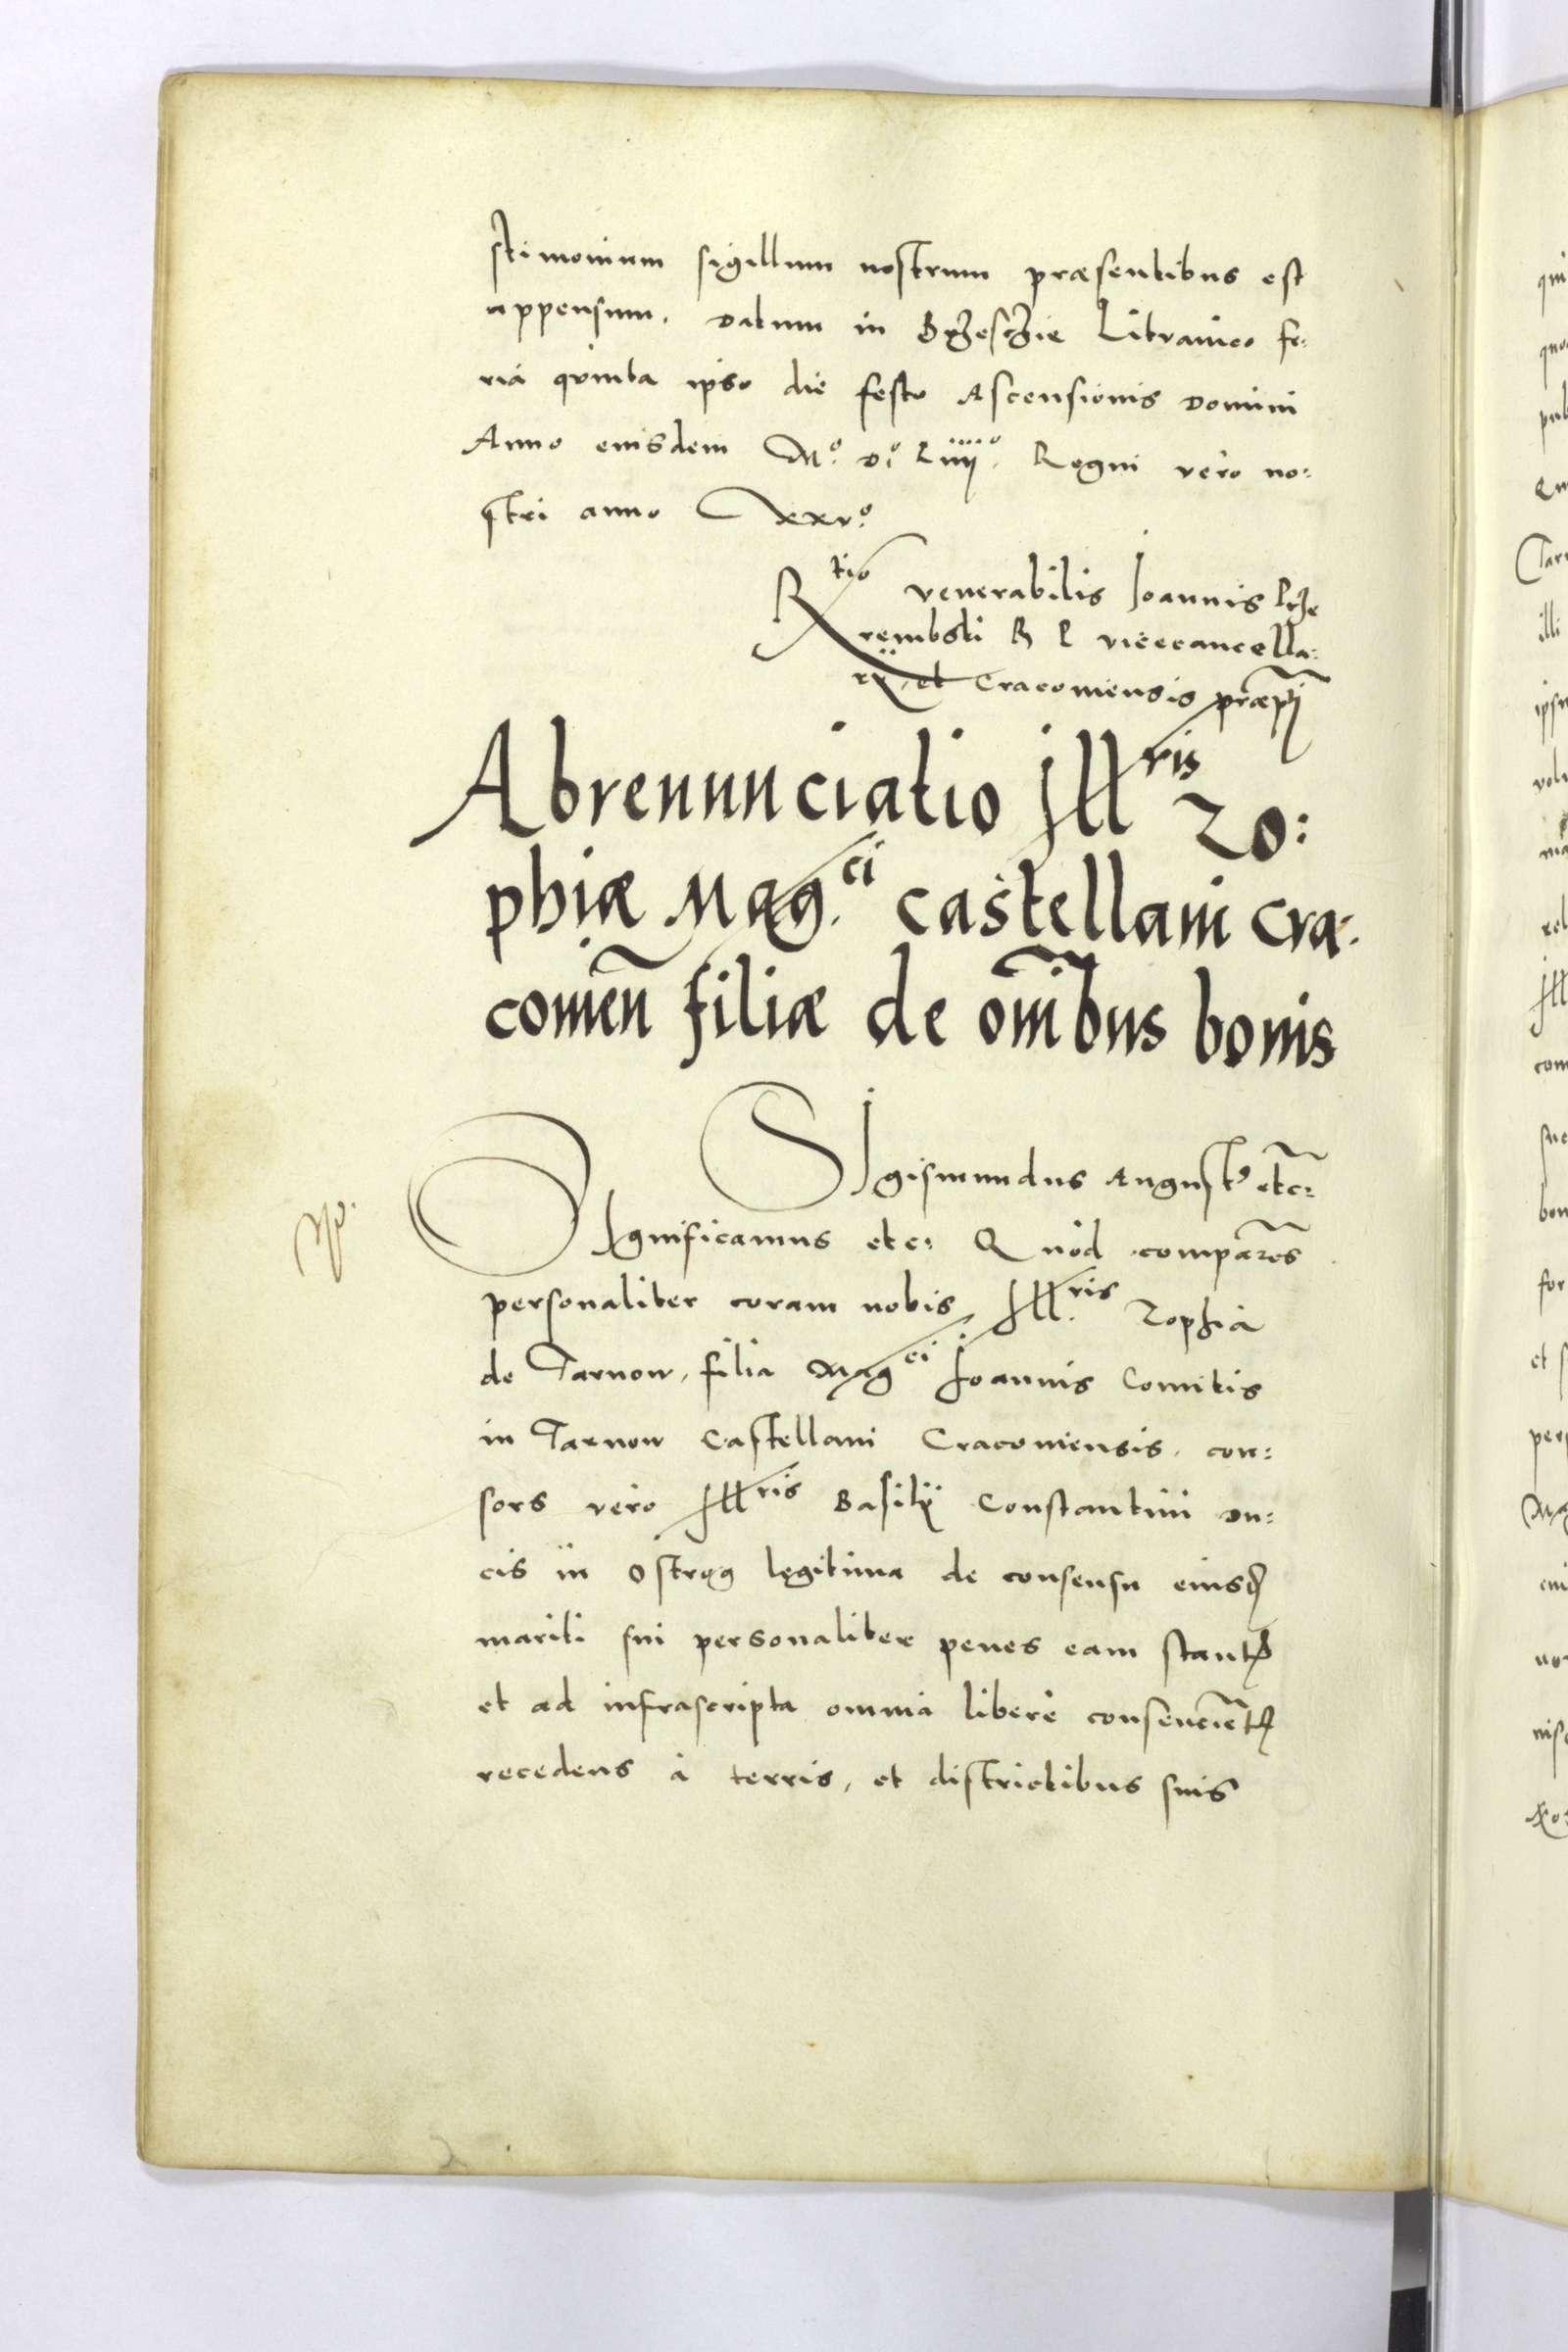 stimonium sigillum nostrum præsentibus est
appensum. Datum in Brzesczie Litvanico fe:
ria quinta ipso die festo Ascensionis Domini
Anno eiusdem Mº. Dº. Liiiiº. Regni vero no:
stri anno xxvº.
Rtio venerabilis Ioannis Prze
rembski R P vicecancella:
rij, et Cracoviensis præpti
Abrenunciatio Illris Zo:
phiæ Mag.ci castellani cra:
comen̄ filiæ de om̄ibus bonis
SIgismundus August9 etc:
SIgnificamus etc: Quod compar̄es
personaliter coram nobis Ill.ris Zophia
de Tarnow, filia Magci Ioannis Comitis
in Tarnow Castellani Cracoviensis, con:
sors vero Illris Basilij Constantini du:
cis in Ostrog legitima de consensu eiusd
mariti sui personaliter penes eam stant
et ad infrascripta omnia libere consencient
recedens à terris, et districtibus suis